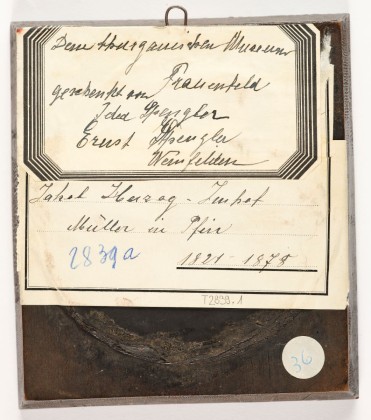 Dem thurgauischen Museum
Frauenfeld
geschenkt von
Ida Spengler
Ernst Spengler
Weinfelden
Jakob Herzog-
Müller in Pfin
2839a
1821-1875
T2839.1
36